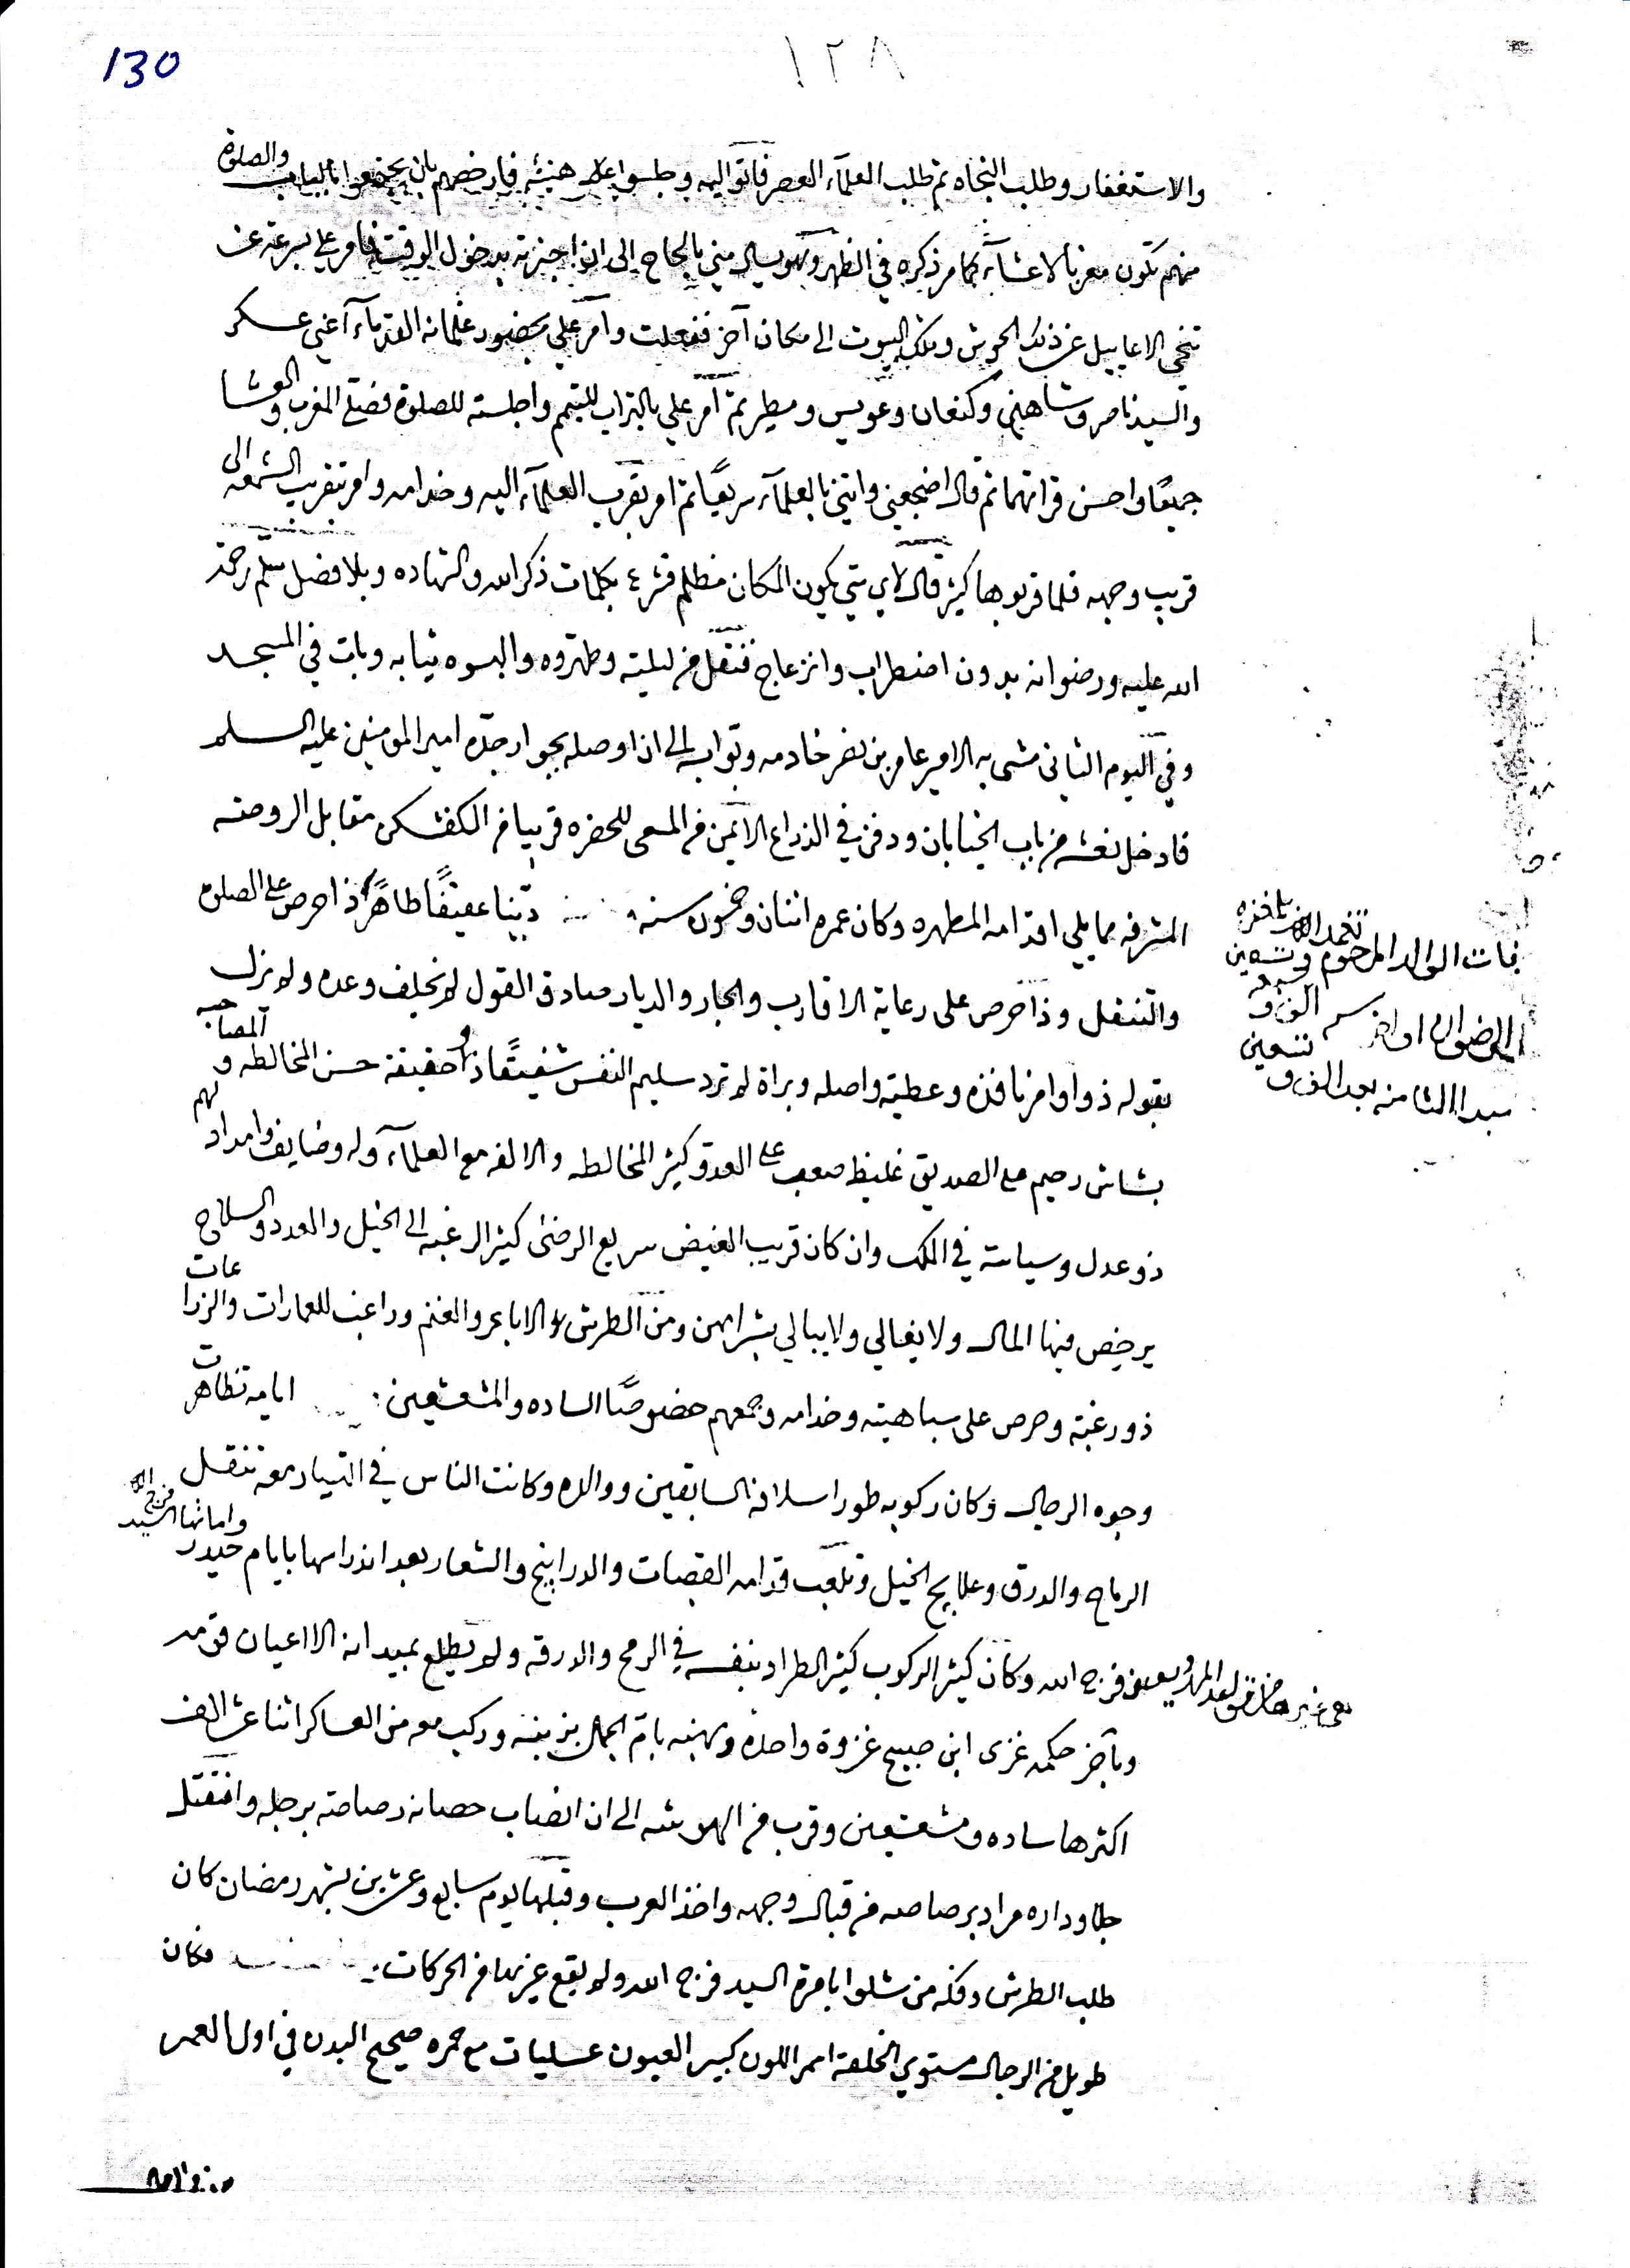 130
١٢٨
والاستغفار وطلب النجاه ثم طلب العلمآء العصر فاتوا اليه وجلسوا على هنيئه فارخصهم بان يجتمعوا بالباب والصلوة
منهم تكون مغربا لاعشآء كما مر ذكره في الظهر وهو يسال مني بالحاح الى ان اخبرته بدخول الوقت فامر علي بسرعة عن
تنحي الاعاييل عن ذلك الحوش وتلك البيوت الى مكان آخر ففعلت وامر علي بحضور غلمانه القدمآء اعني عسكر
والسيد ناصر وشاهين وكنعان وعويس ومطر ثم آمر علي بالتراب للتيمم واجلسته للصلوة فصلى المغرب والعشا
جميعًا واحسن قراتهما ثم قال اضجعني وايتني بالعلمآء سريعًا ثم امر بقرب العلمآء اليه وخدامه وامر بتقريب الشمعه الى
قريب وجهه فلما قربوها كثير قال لاي شي يكون المكان مظلم فشرع بكلمات ذكر الله والشهاده وبلا فصل سلّم رحمة
الله عليه ورضوانه بدون اضطراب وانزعاج فنقل من ليلته وطهروه والبسوه ثيابه وبات في المسجد
وفي اليوم الثاني مشى به الامير عامر بن نصر خادمه وتوابه الى ان اوصله بجوار جده امير المومنين عليه السلم
فادخل نعشه من باب الخيابان ودفن في الذراع الايمن من المسعى للحضره قريبا من الكفشكن مقابل الروضه
المشرفه مما يلي اقدامه المطهره وكان عمره اثنان وخمسون سنه دينا عفيفًا طاهرًا ذا حرص على الصلوة
والتنفل وذا حرص على رعاية الاقارب والجار والديار صادق القول لم يخلف وعده ولم يزل
بقوله ذو اوامر نافذه وعطيه واصله وبراة لم ترد سليم النفس شفيقًا ذو حقيقة حسن المخالطه والمصاحبه
بشاش رحيم مع الصديق غليظ صعب على العدو كثير المخالطه والالفه مع العلمآء وله وضايف وامداد لهم
ذو عدل وسياسة في الملك وان كان قريب الغيض سريع الرضى كثير الرغبه الى الخيل والعدد والسلاح
يرخص فيها المال ولا يغالي ولا يبالي بشرايهن ومن الطرش والاباعر والغنم وراغب للعمارات والزراعات
ذو رغبة وحرص على سباهيته وخدامه وجمعهم خصوصًا الساده والمشعشعين ايامه تظاهرت
وجوه الرجال وكان ركوبه طور اسلافه السابقين ووالده وكانت الناس في التسيار معه تنقل
الرماح والدرق وعلابيج الخيل وتلعب قدامه القصبات والدرابيج والشعار بعد اندراسها بايام حيدر واماتها السيد فرج الله
فرج الله وكان كثير الركوب كثير الطراد بنفسه في الرمح والدرقه ولم يطلع بميدانه الا اعيان قومه
وبآخر حكمه غزى ابن صبيح غزوة واحده ونهبه بام الجمل بزينيه وركب معه من العساكر اثنا عشر الف
اكثرها ساده ومشعشعين وقرب من الهوشه الى ان انصاب حصانه رصاصة برجله وانقتل
جلوداره مراد برصاصه من قبال وجهه واخذ العرب وقبلها يوم سابع وعشرين بشهر رمضان كان
طلب الطرش وفكه من شلوا بامرة السيد فرج الله ولم يقع غيرها من الحركات فكان
طويل من الرجال مستوي الخلقة اسمر اللون كبير العيون عسليات مع حمره صحيح البدن في اول العمر
فات الوالد المرحوم
تسعين
الف و
تسعين